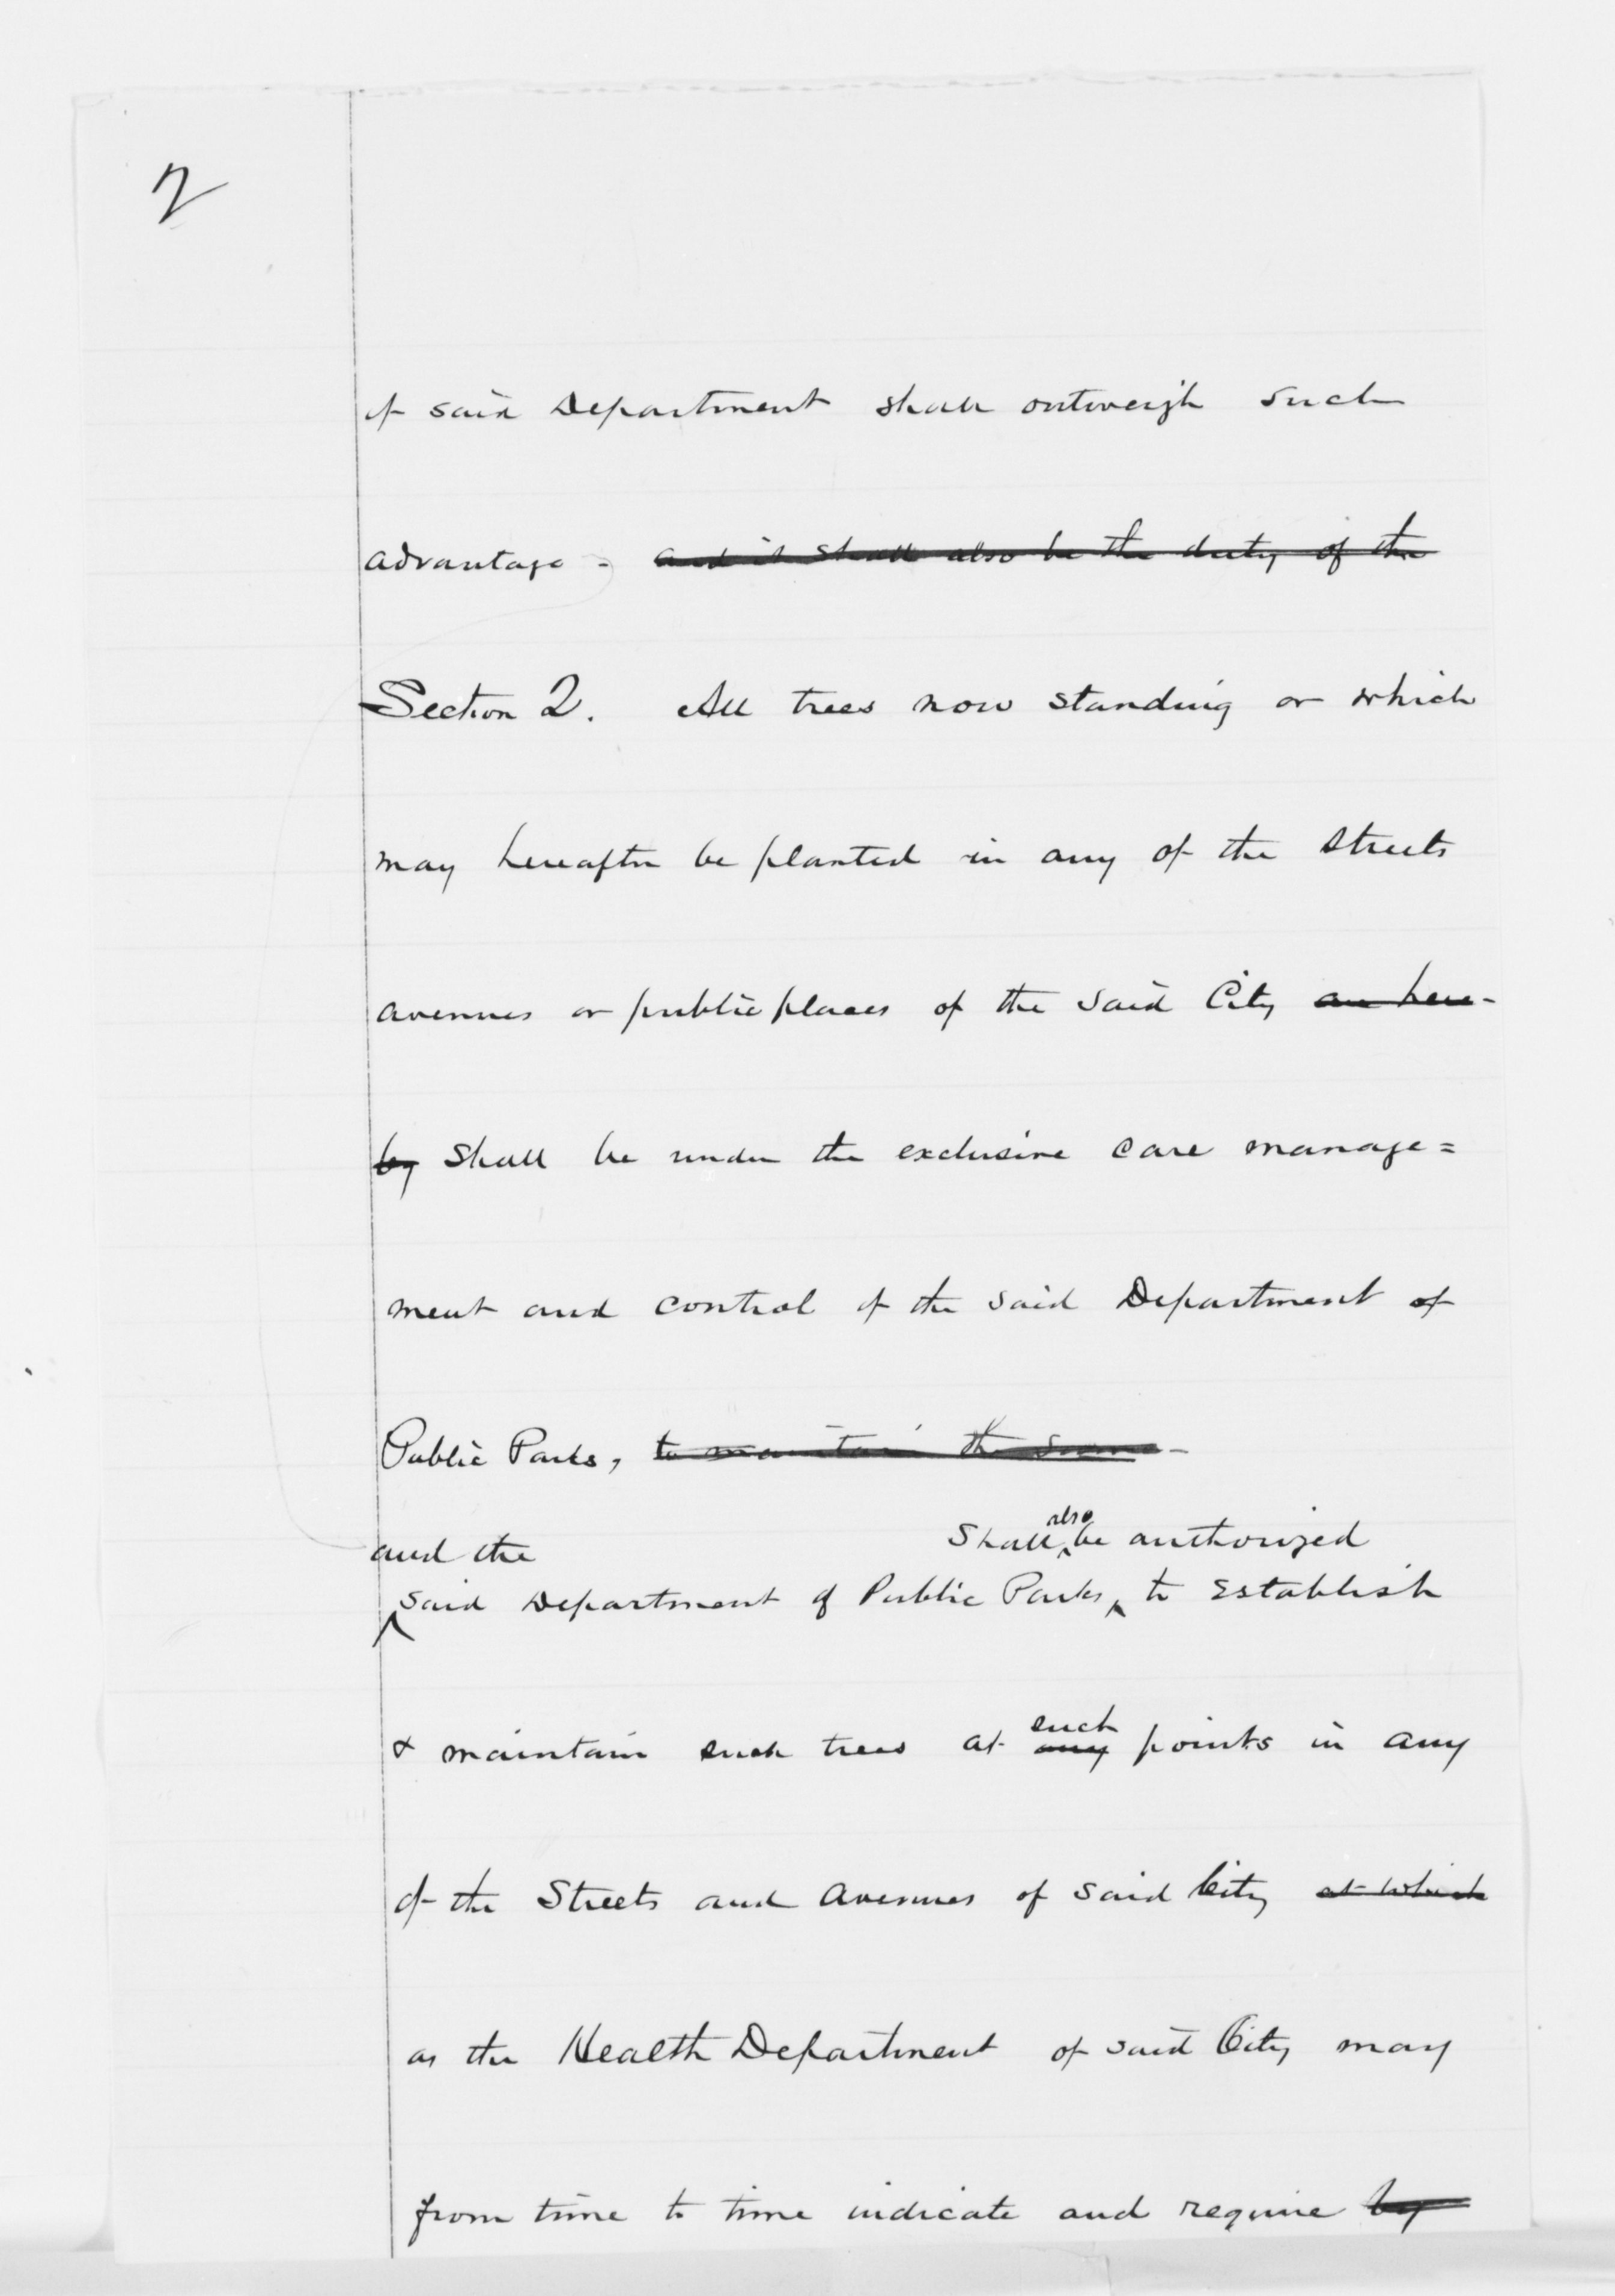 2
of said Department shall outweigh such
advantage - and it shall also be the duty of the
Section 2. All trees now standing or which
may hereafter be planted in any of the streets
avenues or public places of the said City are here-
by shall be under the exclusive care manage=
ment and control of the said Department of
Public Parks, to maintain the same -
and the shall also be authorized
said Department of Public Parks, to establish
such
& maintain such trees at any points in any
of the Streets and Avenues of said City at which
as the Health Department of said City may
from time to time indicate and require by